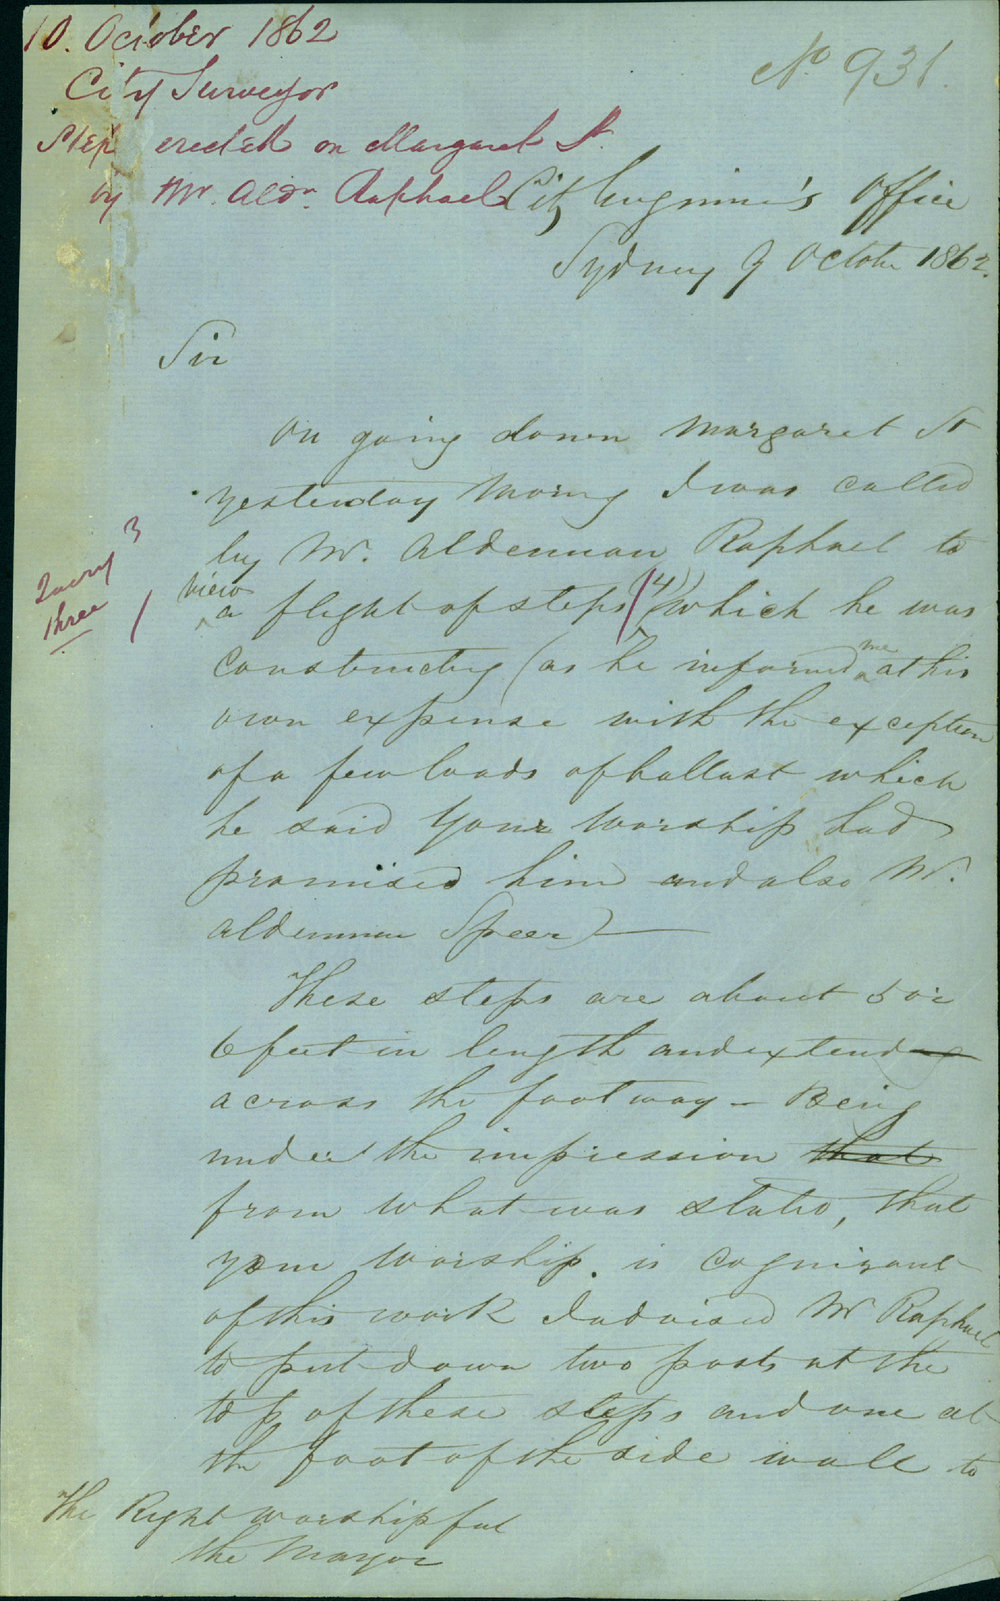 10. October 1862
City Surveyor
Steps erected on Margaret St.
by Mr. Aldn. Raphael
No 931.
City Engineer's Office
Sydney 9 October 1862.
Sir
On going down Margaret St
yesterday Morng I was called
by Mr. Alderman Raphael to
view
a flight of steps (4) which he was
Query 3
three
constructing (as he informed me at his
own expense with the exception
of a few loads of ballast which
he said Your Worship had
promised him and also Mr.
Alderman Speer)
These steps are about 5 or
6 feet in length and extend
across the footway - Being
under the impression that
from what was stated, that
your Worship. is cognizant
of this work I advised Mr Raphael
to put down two posts at the
top of these steps and one at
the foot of the side wall to
The Right Worshipful
the Mayor